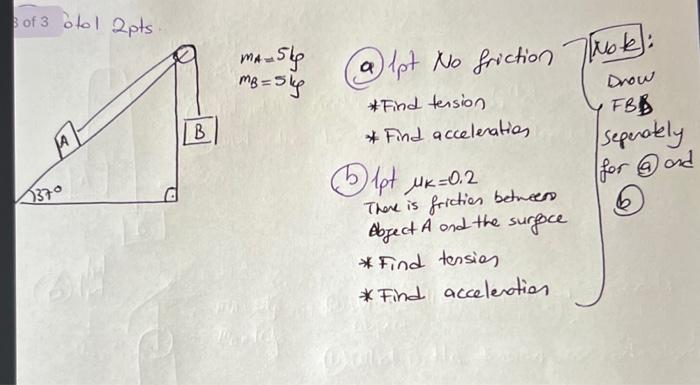 3 of 3 total 2pts.
mA=5kg
mB=5kg
A
B
37°
(a) 1pt No friction
*Find tension
* Find acceleration
(b) 1pt μK=0.2
There is friction between
object A and the surface
* Find tension
* Find acceleration
Note:
Draw
FBD
seperately
for (a) and
(b)